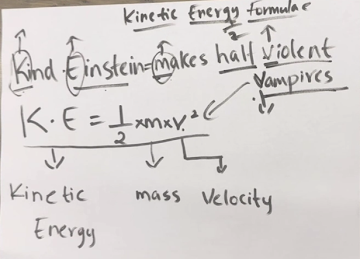 Kinetic Energy formulae
2
Kind Einstein=makes half violent
Vampires
K.E = 1/2 xmxv.²
Kinetic mass Velocity
Energy